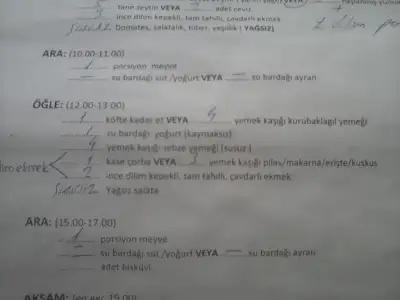 5 tane zeytin VEYA 2 adet ceviz
3 ince dilim kepekli, tam tahıllı, çavdarlı ekmek
Sınırsız Domates, salatalık, biber, yeşillik ( YAĞSIZ)
ARA: (10.00-11.00)
1 porsiyon meyve
— su bardağı süt /yoğurt VEYA — su bardağı ayran
ÖĞLE: (12.00-13.00)
1 köfte kadar et VEYA 4 yemek kaşığı kurubaklagil yemeği
1 su bardağı yoğurt (kaymaksız)
4 yemek kaşığı sebze yemeği (susuz)
1 kase çorba VEYA yemek kaşığı pilav/makarna/erişte/kuskus
ekmek 2 ince dilim kepekli, tam tahıllı, çavdarlı ekmek
Sınırsız Yağsız salata
ARA: (15.00-17.00)
1 porsiyon meyve
— su bardağı süt /yoğurt VEYA — su bardağı ayran
adet bisküvi
AKŞAM: (en geç 19.00)